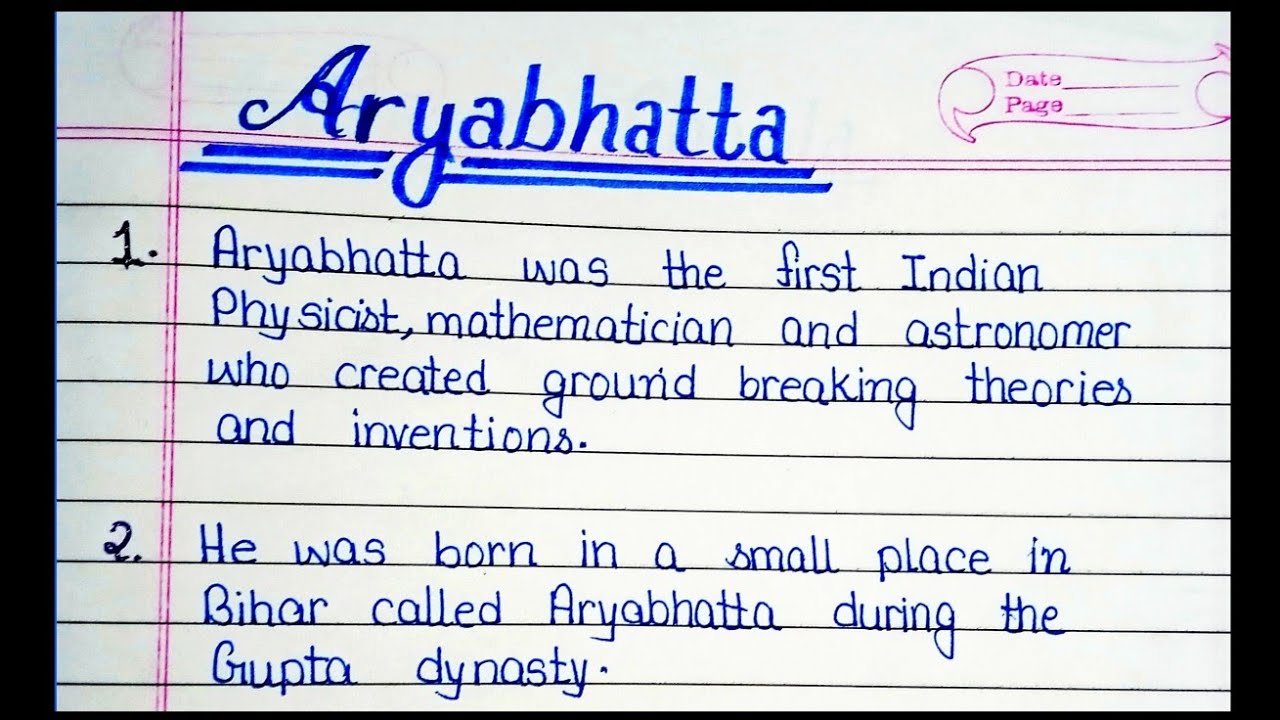 Aryabhatta
Date
Page
1. Aryabhatta was the first Indian
Physicist, mathematician and astronomer
who created ground breaking theories
and inventions.
2. He was born in a small place in
Bihar called Aryabhatta during the
Gupta dynasty.